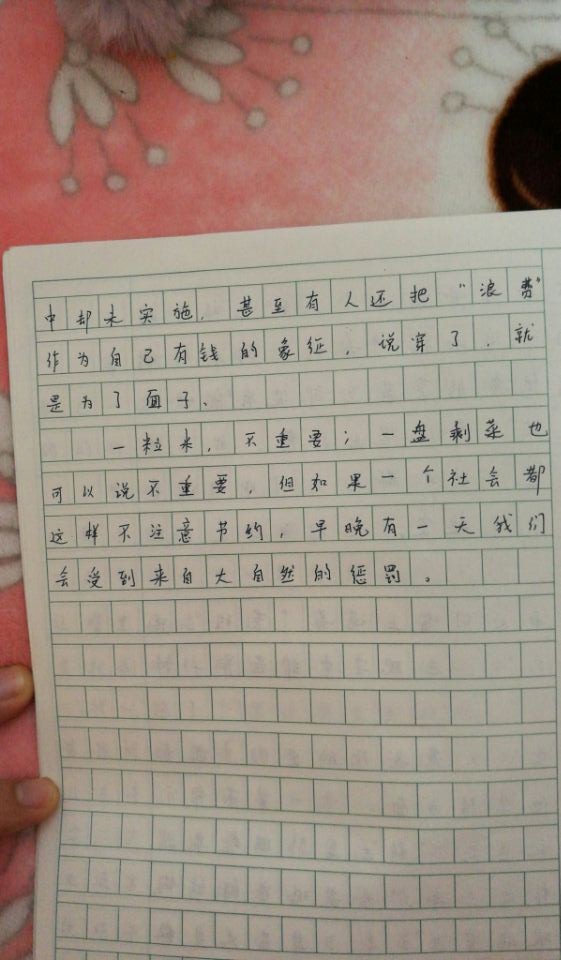 中却未实施，甚至有人还把“浪费”
作为自己有钱的象征，说穿了，就
是为了面子、
一粒米，不重要；一盘剩菜也
可以说不重要，但如果一个社会都
这样不注意节约，早晚有一天我们
会受到来自大自然的惩罚。